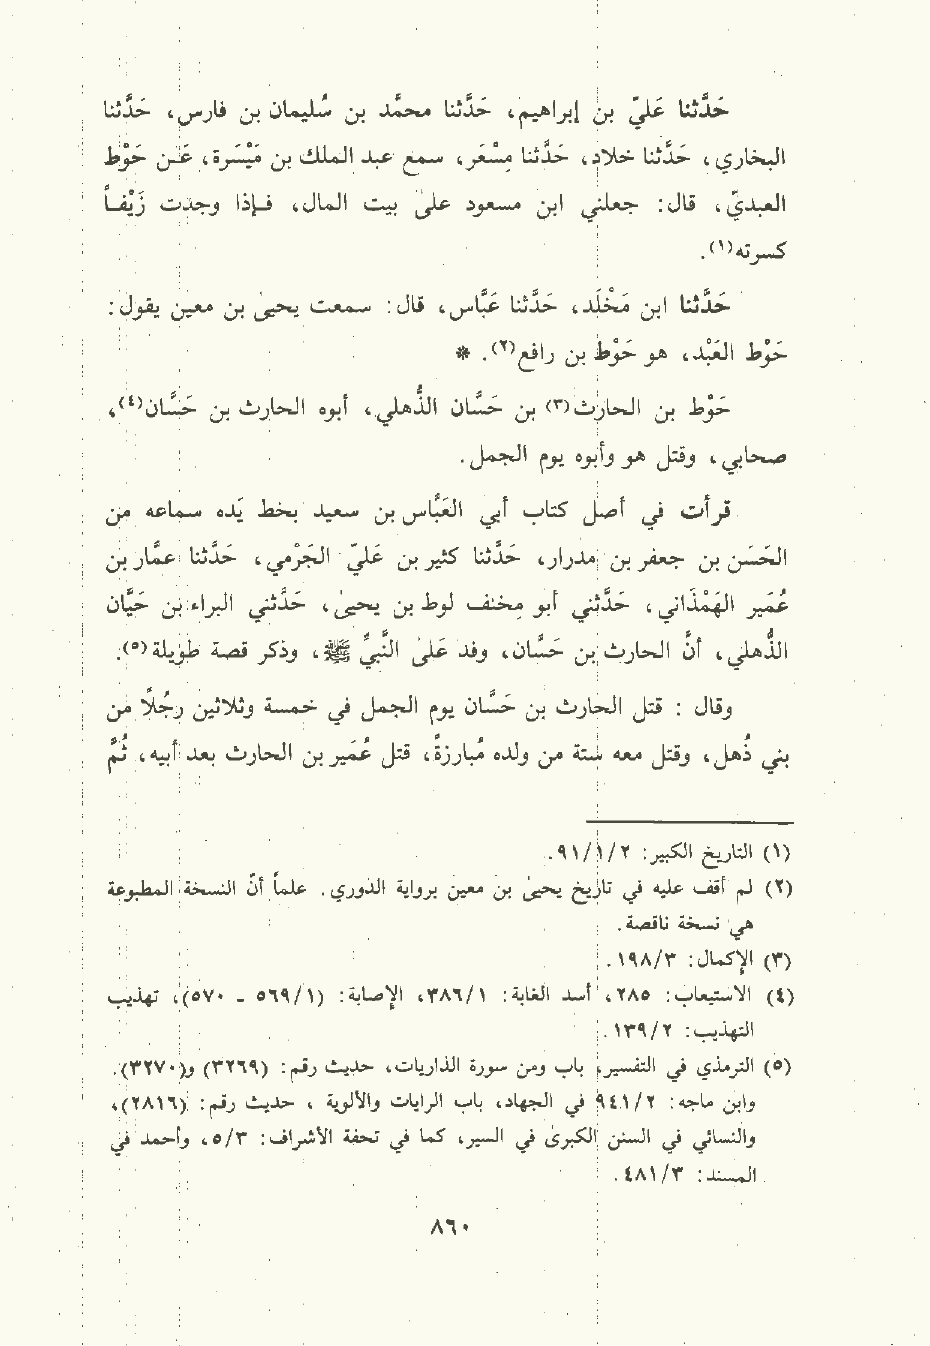 حَدَّثنا عَليّ بن إبراهيم، حَدَّثنا محمَّد بن سُليمان بن فارس، حَدَّثنا
البخاري، حَدَّثنا خلاد، حَدَّثنا مِسْعَر، سمع عبد الملك بن مَيْسَرة، عَـن حَوْط
العبديّ، قال: جعلني ابن مسعود علىٰ بيت المال، فـإذا وجدت زَيْفـاً
كسرته(١).
حَدَّثنا ابن مَخْلَد، حَدَّثنا عَبَّاس، قال: سمعت يحيىٰ بن معين يقول:
حَوْط العَبْد، هو حَوْط بن رافع(٢). *
حَوْط بن الحارث(٣) بن حَسَّان الذُّهلي، أبوه الحارث بن حَسَّان(٤)،
صحابي، وقتل هو وأبوه يوم الجمل.
قرأت في أصل كتاب أبي العَبَّاس بن سعيد بخط يَده سماعه من
الحَسَن بن جعفر بن مدرار، حَدَّثنا كثير بن عَليّ الجَرْمي، حَدَّثنا عمَّار بن
عُمَير الهَمْذَاني، حَدَّثني أبو مِخنف لوط بن يحيىٰ، حَدَّثني البراء بن حَيَّان
الذُّهلي، أنَّ الحارث بن حَسَّان، وفد عَلىٰ النَّبيِّ ﷺ، وذكر قصة طويلة(٥).
وقال : قتل الحارث بن حَسَّان يوم الجمل في خمسة وثلاثين رجُلاً من
بني ذُهل، وقتل معه ستة من ولده مُبارزةً، قتل عُمَير بن الحارث بعد أبيه، ثُمَّ
(١) التاريخ الكبير: ٩١/١/٢.
(٢) لم أقف عليه في تاريخ يحيىٰ بن معين برواية الدوري. علماً أنَّ النسخة المطبوعة
هي نسخة ناقصة.
(٣) الإكمال: ١٩٨/٣.
(٤) الاستيعاب: ٢٨٥، أسد الغابة: ٣٨٦/١، الإصابة: (٥٦٩/١ - ٥٧٠)، تهذيب
التهذيب: ١٣٩/٢.
(٥) الترمذي في التفسير، باب ومن سورة الذاريات، حديث رقم: (٣٢٦٩) و(٣٢٧٠).
وابن ماجه: ٩٤١/٢ في الجهاد، باب الرايات والألوية ، حديث رقم: (٢٨١٦)،
والنسائي في السنن الكبرىٰ في السير، كما في تحفة الأشراف: ٥/٣، وأحمد في
المسند: ٤٨١/٣.
٨٦٠